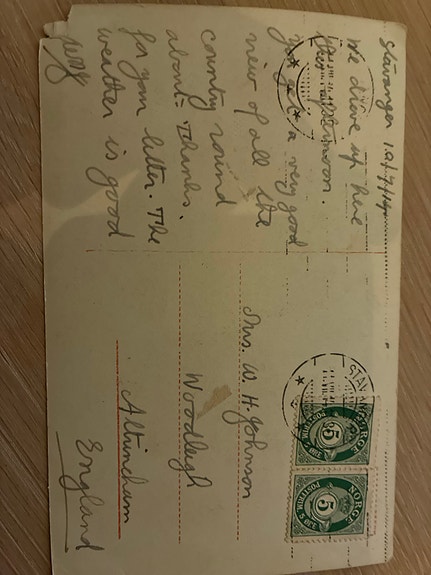 Stavanger 10/7/14
We drive up here
this afternoon.
You get a very good
view of all the
country round
about. Thanks
for your letter. The
weather is good
Mrs. W. H. Johnson
Woodleigh
Altrincham
England
STAVANGER
NORGE
POSTFRIM. 5 ØRE
5
NORGE
POSTFRIM. 5 ØRE
5